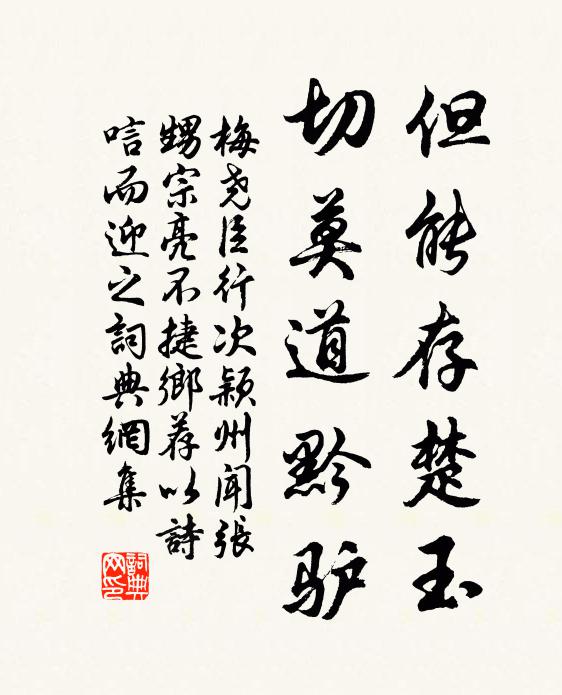 但能存楚玉
切莫道黔驴
梅尧臣行次颍州闻张
甥宗亮不捷鄉荐以詩
唁而迎之詞典網集
詞典網印